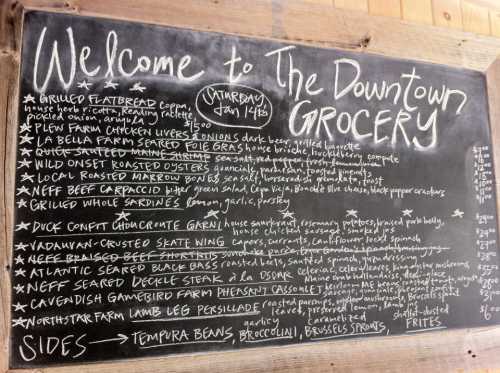 Welcome to The Downtown
GROCERY
SATURDAY
Jan 14th
GRILLED FLATBREAD coppa,
house herb ricotta, Reading raclette,
pickled onion, arugula $15.00
PLEW FARM CHICKEN LIVERS & ONIONS dark beer, grilled baguette
LA BELLA FARM SEARED FOIE GRAS house brioche, huckleberry compote
QUICK SAUTEED MAINE SHRIMP sea salt, red pepper
WILD ONSET ROASTED OYSTERS guanciale, parmesan, toasted pimentos
LOCAL ROASTED MARROW BONES sea salt, horseradish gremolata, toast
NEFF BEEF CARPACCIO bitter green salad, blue cheese, black pepper crackers
GRILLED WHOLE SARDINES lemon, garlic, parsley
DUCK CONFIT CHOUCROUTE GARNI house sauerkraut, rosemary potatoes, braised pork belly,
house chicken sausage, smoked jos
VADAUVAN-CRUSTED SKATE WING capers, currants, cauliflower, local spinach
NEFF BRAISED BEEF SHORTRIBS
ATLANTIC SEARED BLACK BASS roasted beets, wilted spinach,
NEFF SEARED DECKLE STEAK à la OSCAR celeriac, celery leaves, king oyster mushrooms
CAVENDISH GAMEBIRD FARM PHEASANT CASSOULET
NORTHSTAR FARM LAMB LEG PERSILLADE roasted parsnips, oyster mushrooms, Brussels sprout
leaves, preserved lemon
SIDES → TEMPURA BEANS, garlicky BROCCOLINI, caramelized BRUSSELS SPROUTS, shallot-dusted FRITES
$6.00